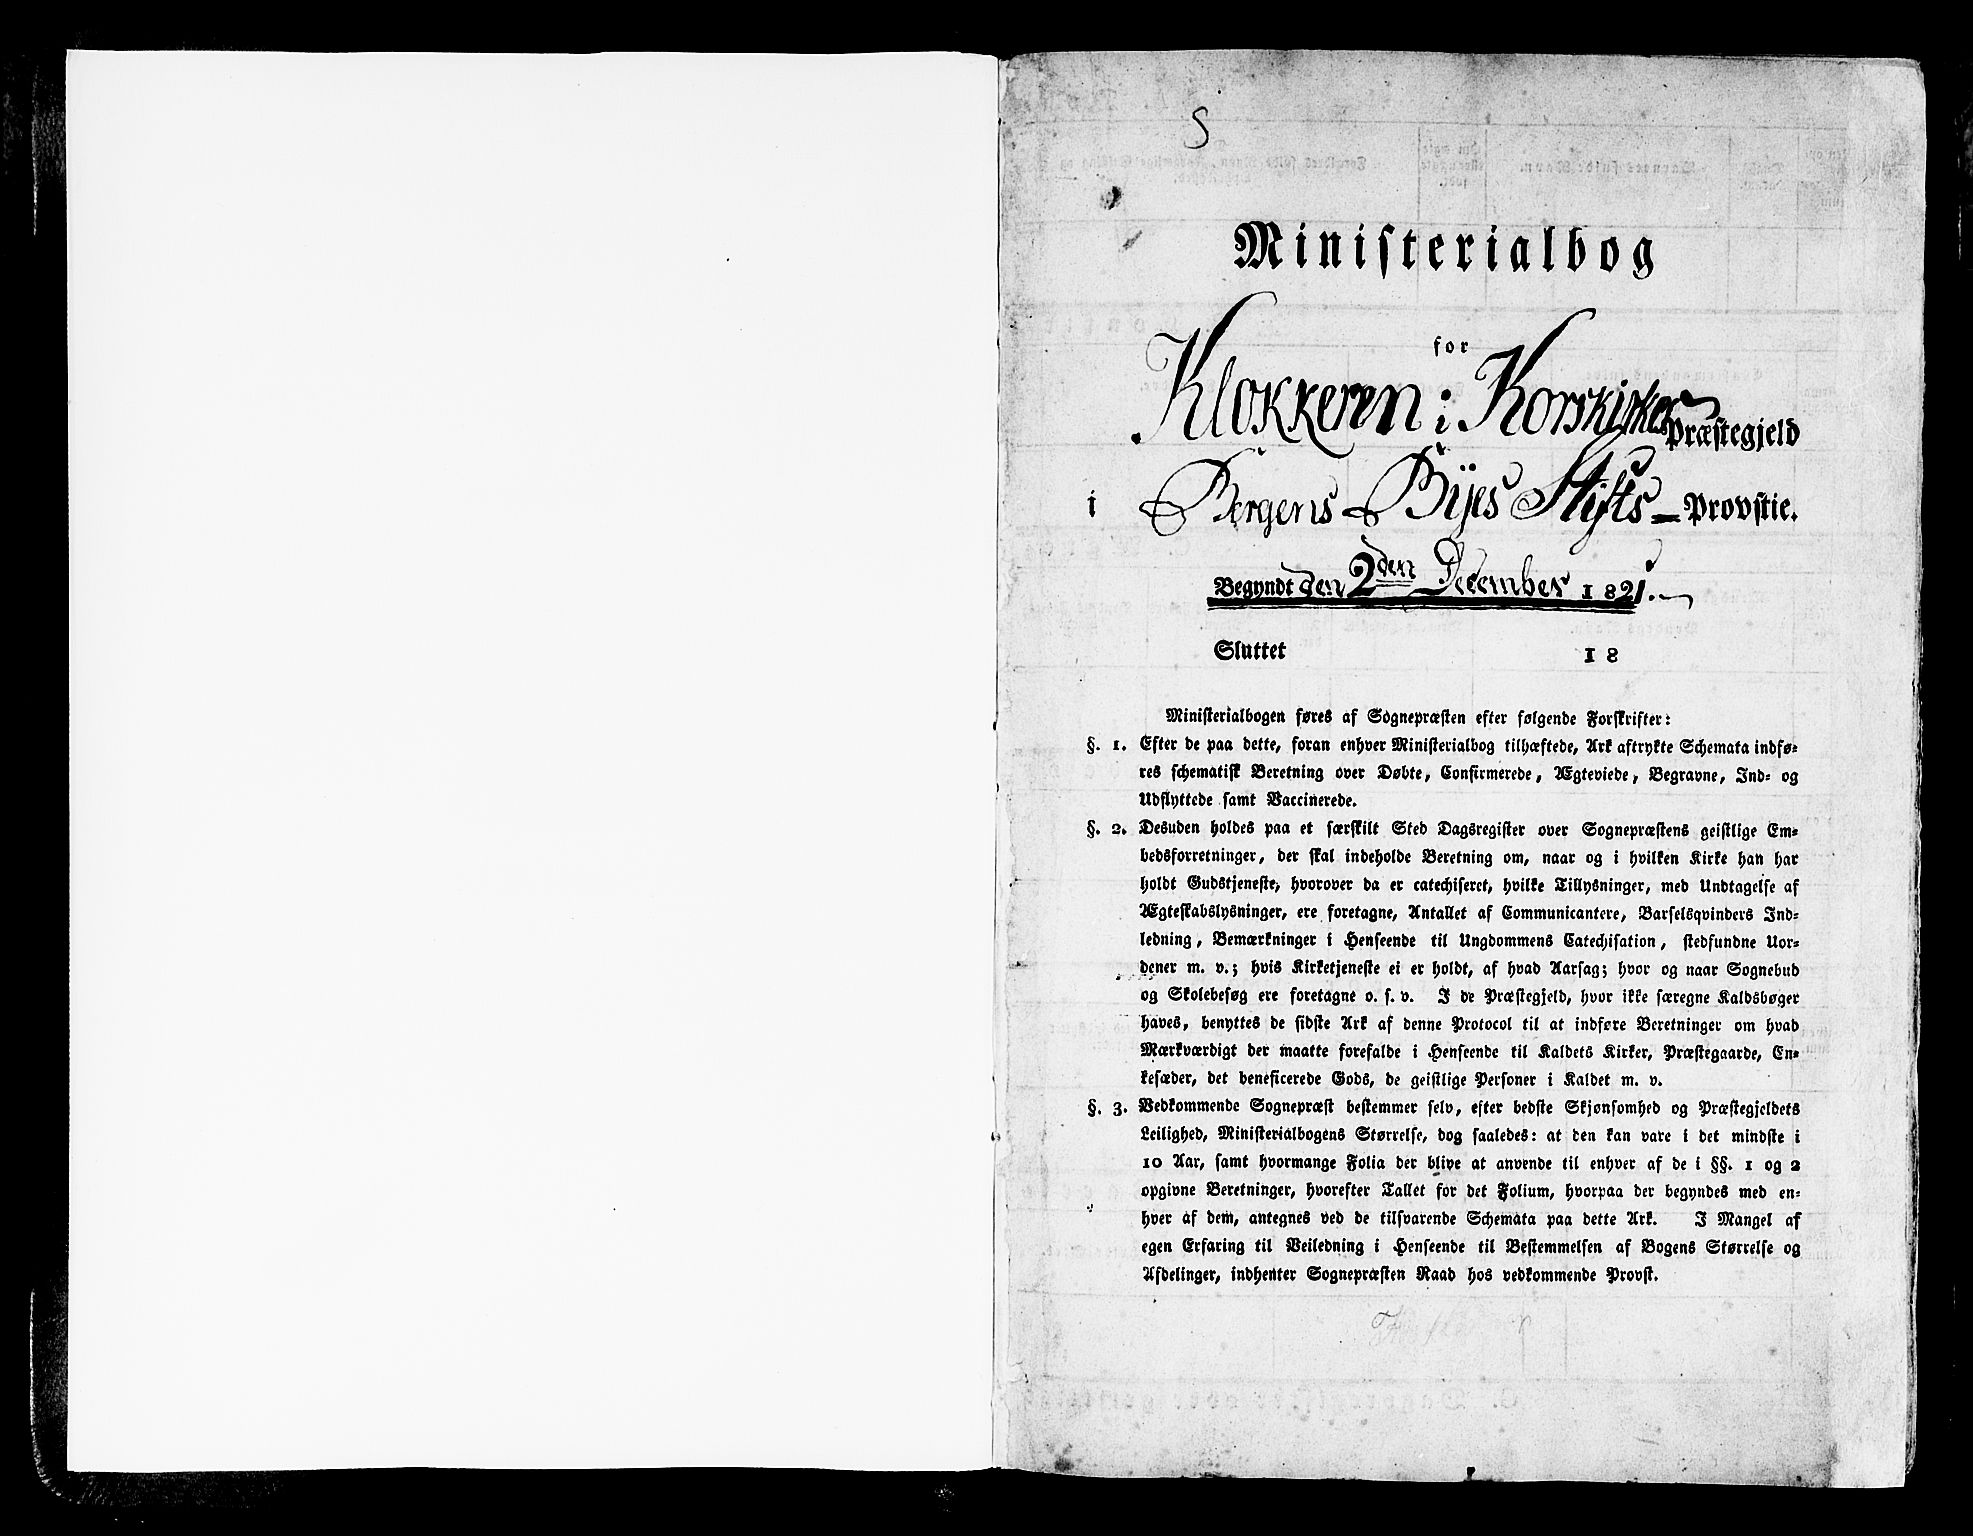 S
Ministerialbog
for
Klokkeren i Korskirkes Præstegjeld
i Bergens Byes Stifts-Provstie.
Begyndt den 2den December 1821.
Sluttet 18
Ministerialbogen føres af Sognepræsten efter følgende Forskrifter:
§. 1. Efter de paa dette, foran enhver Ministerialbog tilhæftede, Ark aftrykte Schemata indfø-
res schematisk Beretning over Døbte, Confirmerede, Ægteviede, Begravne, Ind- og
Udflyttede samt Vaccinerede.
§. 2. Desuden holdes paa et særskilt Sted Dagsregister over Sognepræstens geistlige Em-
bedsforretninger, der skal indeholde Beretning om, naar og i hvilken Kirke han har
holdt Gudstjeneste, hvorover da er catechiseret, hvilke Tillysninger, med Undtagelse af
Ægteskabslysninger, ere foretagne, Antallet af Communicantere, Barselsqvinders Ind-
ledning, Bemærkninger i Henseende til Ungdommens Catechisation, stedfundne Uor-
dener m. v.; hvis Kirketjeneste ei er holdt, af hvad Aarsag; hvor og naar Sognebud
og Skolebesøg ere foretagne o. s. v. I de Præstegjeld, hvor ikke særegne Kaldsbøger
haves, benyttes de sidste Ark af denne Protocol til at indføre Beretninger om hvad
Mærkværdigt der maatte forefalde i Henseende til Kaldets Kirker, Præstegaarde, En-
kesæder, det beneficerede Gods, de geistlige Personer i Kaldet m. v.
§. 3. Vedkommende Sognepræst bestemmer selv, efter bedste Skjønsomhed og Præstegjeldets
Leilighed, Ministerialbogens Størrelse, dog saaledes: at den kan vare i det mindste i
10 Aar, samt hvormange Folia der blive at anvende til enhver af de i §§. 1 og 2
opgivne Beretninger, hvorefter Tallet for det Folium, hvorpaa der begyndes med en-
hver af dem, antegnes ved de tilsvarende Schemata paa dette Ark. I Mangel af
egen Erfaring til Veiledning i Henseende til Bestemmelsen af Bogens Størrelse og
Afdelinger, indhenter Sognepræsten Raad hos vedkommende Provst.